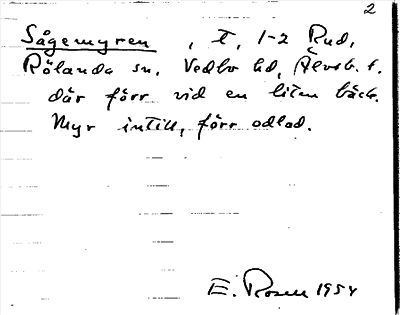 2
Sågemyren , T, 1-2 Rud,
Rölanda sn. Vedbo hd, Älvsb. l.
där förr vid en liten bäck.
Myr intill, förr odlad.
E. Rosell 1954